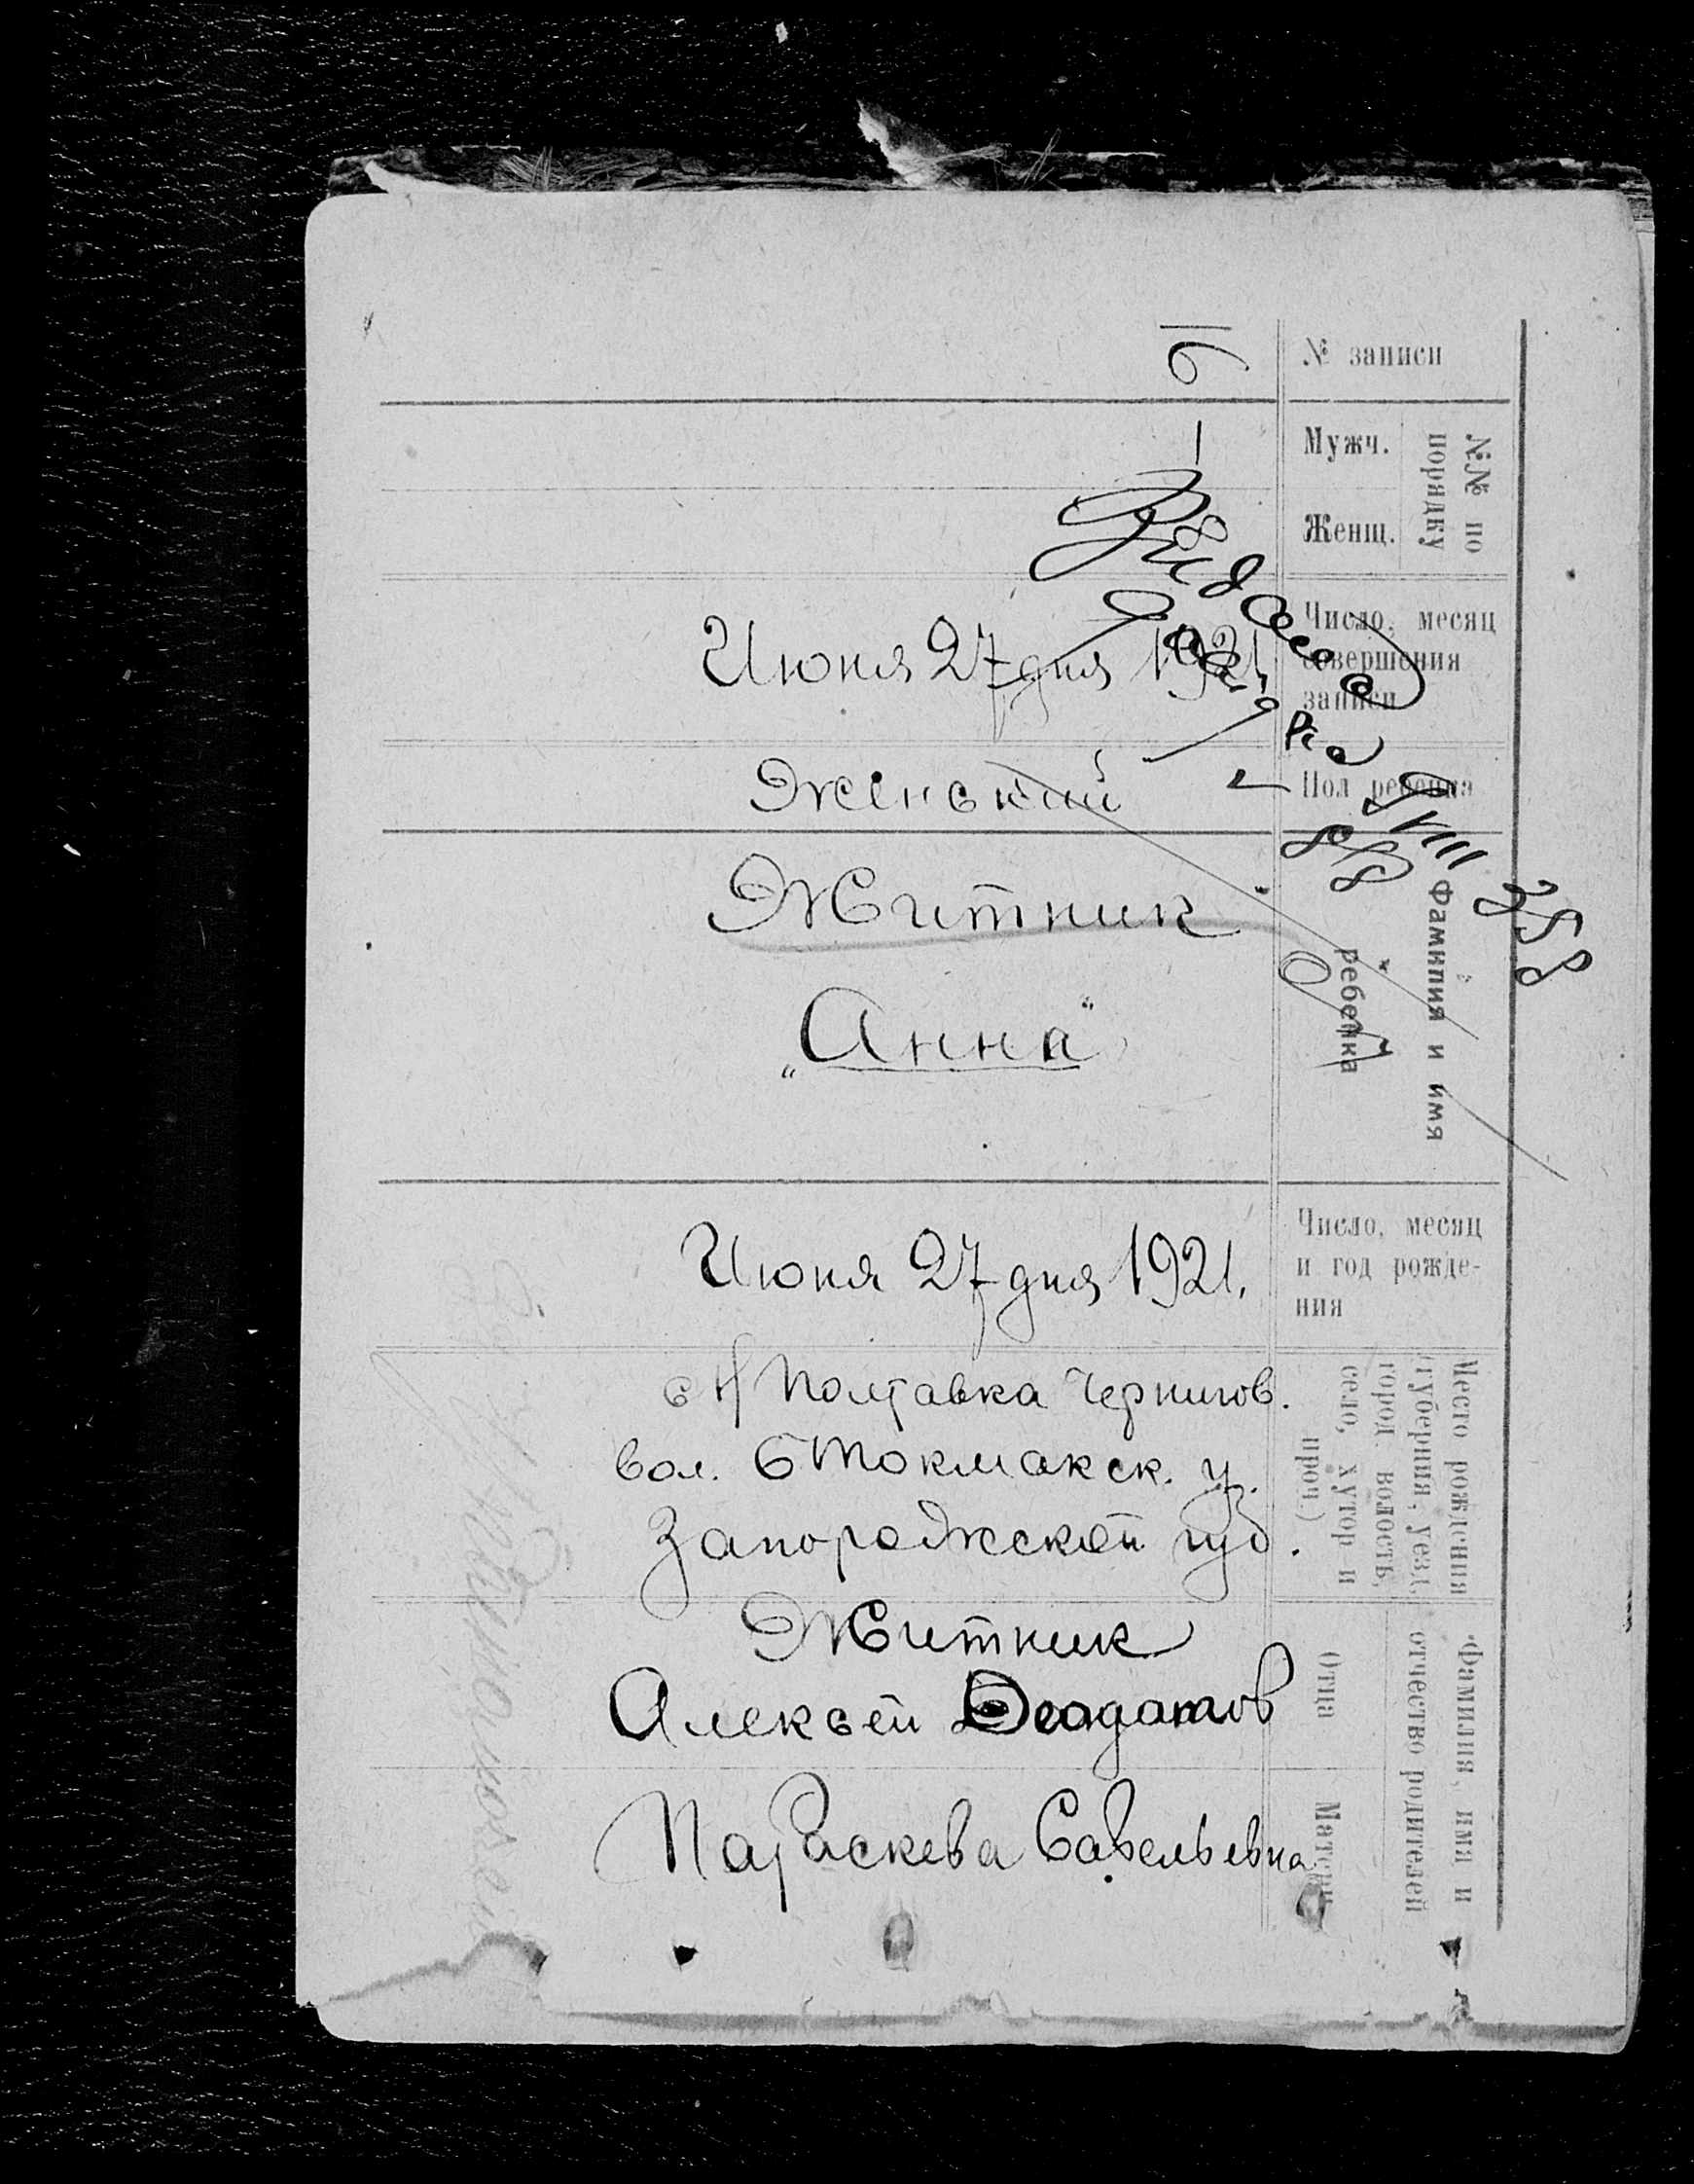 № записи
16
№№ по порядку
Мужч.
1
Женщ.
Число, месяц
совершения
записи
Июня 27 дня 1921
Пол ребенка
Женский
Фамилия и имя
ребенка
Житник
„Анна“
Число, месяц
и год рожде-
ния
Июня 27 дня 1921.
Место рождения
(губерния, уезд,
город, волость,
село, хутор и
проч.)
с Н Полтавка Чернигов.
вол. БТокмакск. у.
Запорожской губ.
Фамилия, имя и
отчество родителей
Отца
Житник
Алексей Деодатов
Матери
Параскева Савельевна
Видано
VIII
358